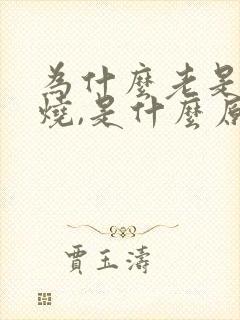 為什麼老是
燒,是什麼原
賈玉濤